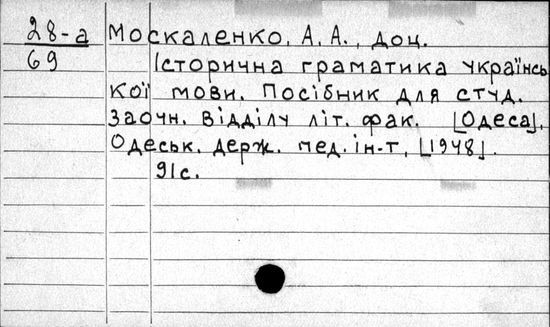 28-а
69
Москаленко, А. А., доц.
Історична граматика українсь
кої мови. Посібник для студ.
Заочн. Відділу літ. фак. [Одеса],
Одеськ. держ. пед. ін-т, [1948].
91с.